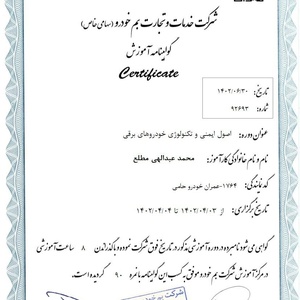 شرکت خدمات و تجارت بم خودرو (سهامی خاص)
گواهینامه آموزش
Certificate
تاریخ: ۱۴۰۲/۰۶/۳۰
شماره: ۹۲۶۹۳
عنوان دوره: اصول ایمنی و تکنولوژی خودروهای برقی
نام و نام خانوادگی کارآموز: محمد عبدالهی مطلع
کد نمایندگی: ۱۷۶۴-عمران خودرو حامی
تاریخ برگزاری: از ۱۴۰۲/۰۴/۰۳ تا ۱۴۰۲/۰۴/۰۴
گواهی می شود نامبرده در دوره آموزشی مذکور در تاریخ فوق شرکت نموده و با گذراندن ۸ ساعت آموزشی
در مرکز آموزش شرکت بم خودرو موفق به کسب این گواهینامه با نمره ۹۰ گردیده است.